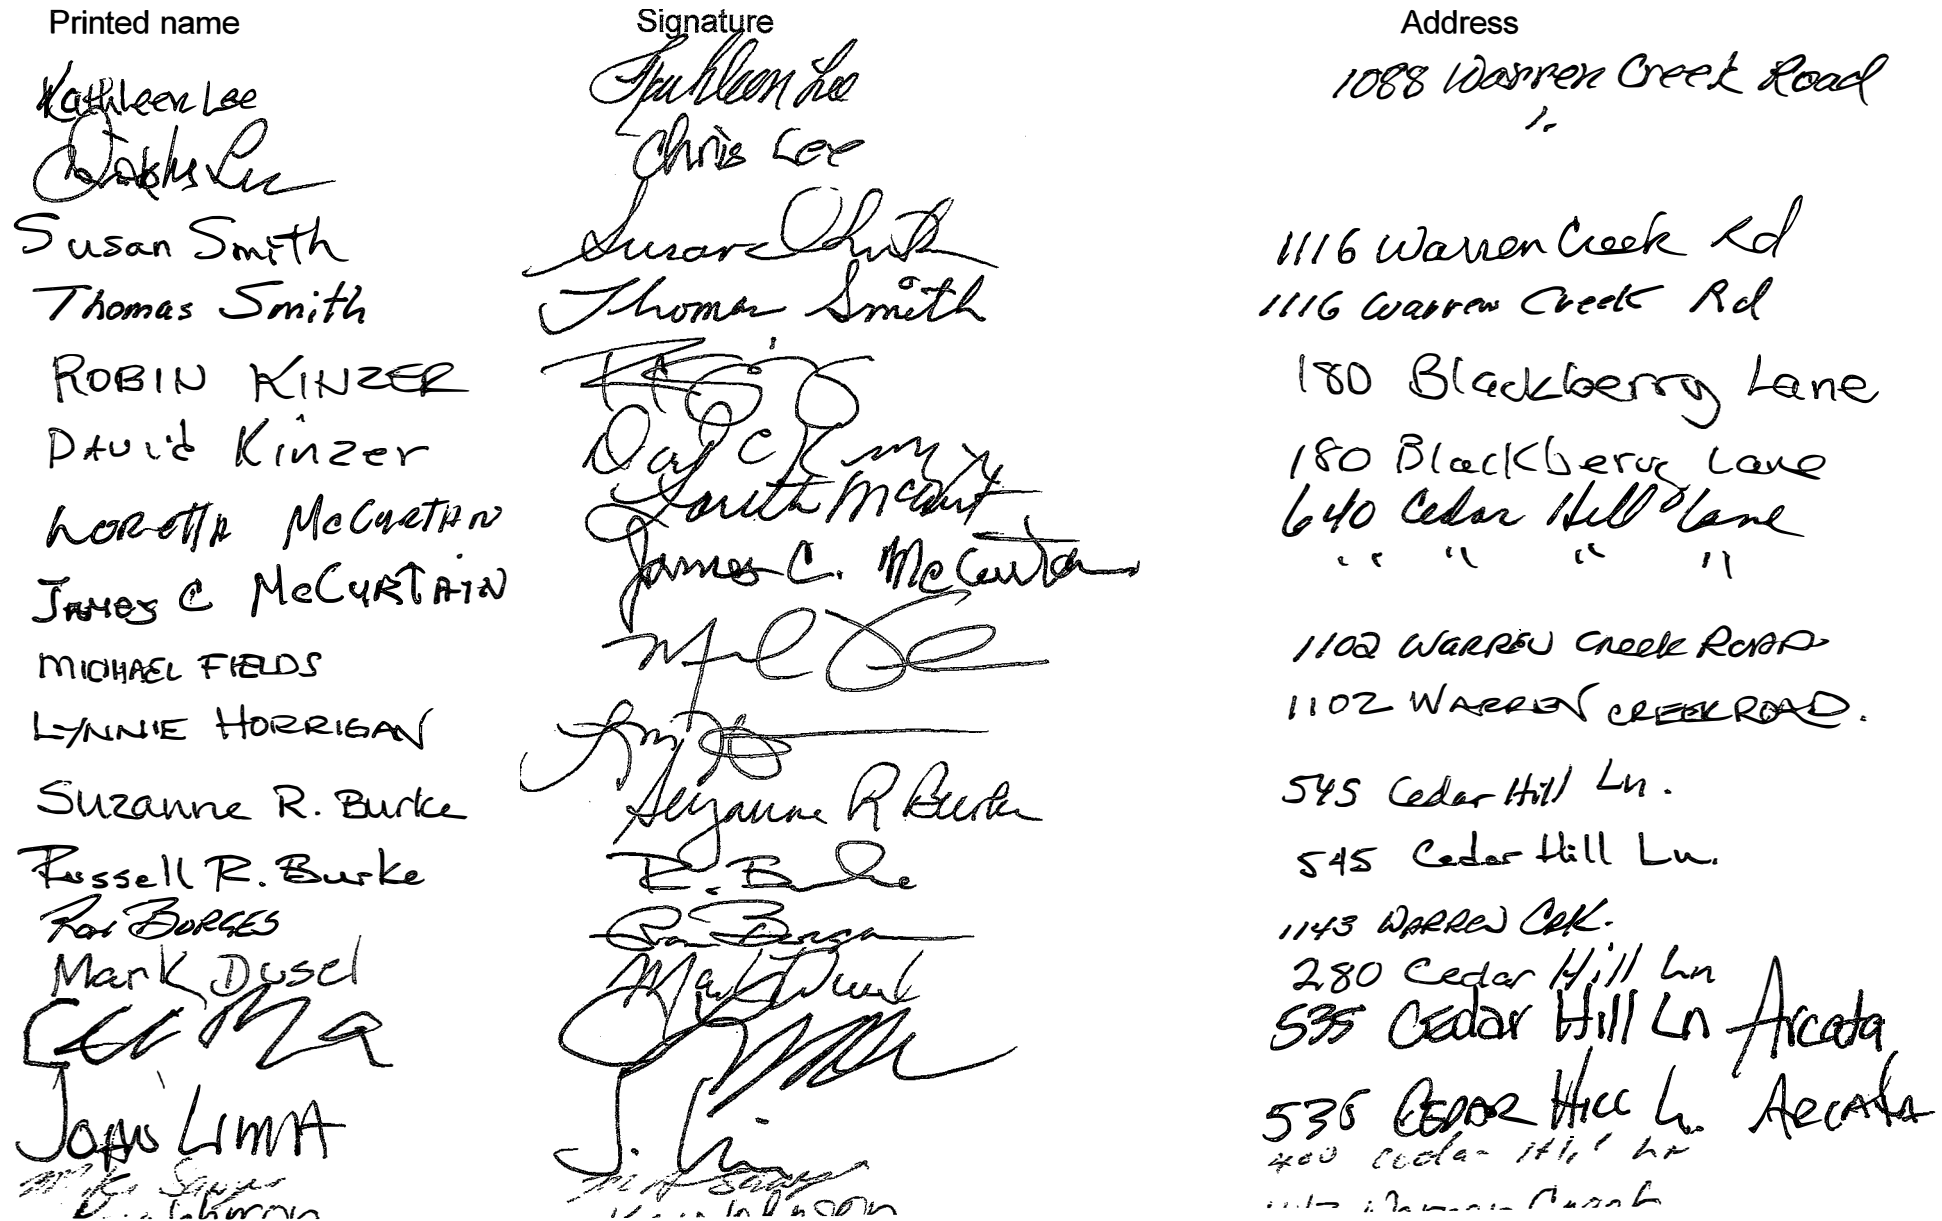 Printed name Signature Address
Kathleen Lee Kathleen Lee 1088 Warren Creek Road
Lee Chris Lee
Susan Smith Susan Smith 1116 Warren Creek Rd
Thomas Smith Thomas Smith 1116 Warren Creek Rd
ROBIN KINZER 180 Blackberry Lane
DAVid Kinzer 180 Blackberry Lane
Loretta McCurtain 640 Cedar Hill Lane
JAMES C McCURTAIN James C. McCurtain " " " "
MICHAEL FIELDS 1102 WARREN Creek ROAD
LYNNIE HORRIGAN 1102 WARREN CREEK ROAD.
Suzanne R. Burke Suzanne R Burke 545 Cedar Hill Ln.
Russell R. Burke R. Burke 545 Cedar Hill Ln.
Ron BORGES Ron Borges 1143 WARREN CRK.
Mark Dusel Mark Dusel 280 Cedar Hill Ln
535 Cedar Hill Ln Arcata
LIMA J. 535 CEDAR HILL Ln. ARCATA
400 Cedar Hill Ln
Johnson Warren Creek